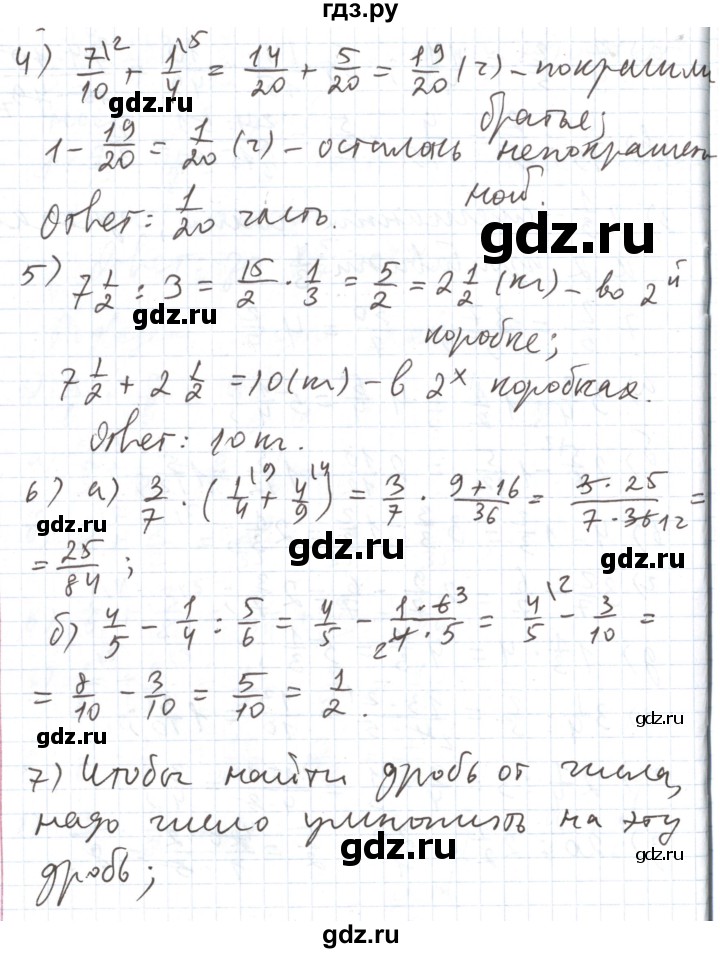 гдз.ру
4) 7/10\2 + 1/4\5 = 14/20 + 5/20 = 19/20 (ч) – покрасили
gdz.ru
братье;
1 – 19/20 = 1/20 (ч) – осталась непокрашен
ной.
Ответ: 1/20 часть.
gdz.ru
5) 7 1/2 : 3 = 15/2 · 1/3 = 5/2 = 2 1/2 (кг) – во 2й
gdz.ru
коробке;
7 1/2 + 2 1/2 = 10 (кг) – в 2х коробках.
Ответ: 10 кг.
6) а) 3/7 · (1/4\9 + 4/9\4) = 3/7 · 9+16/36 = 3·25/7·36 12 =
gdz.ru gdz.ru gdz.ru
= 25/84 ;
б) 4/5 – 1/4 : 5/6 = 4/5 – 1·6 3/2 4·5 = 4/5\2 – 3/10 =
= 8/10 – 3/10 = 5/10 = 1/2 .
gdz.ru
gdz.ru
7) Чтобы найти дробь от числа,
надо число умножить на эту
gdz.ru gdz.ru
дробь;
gdz.ru